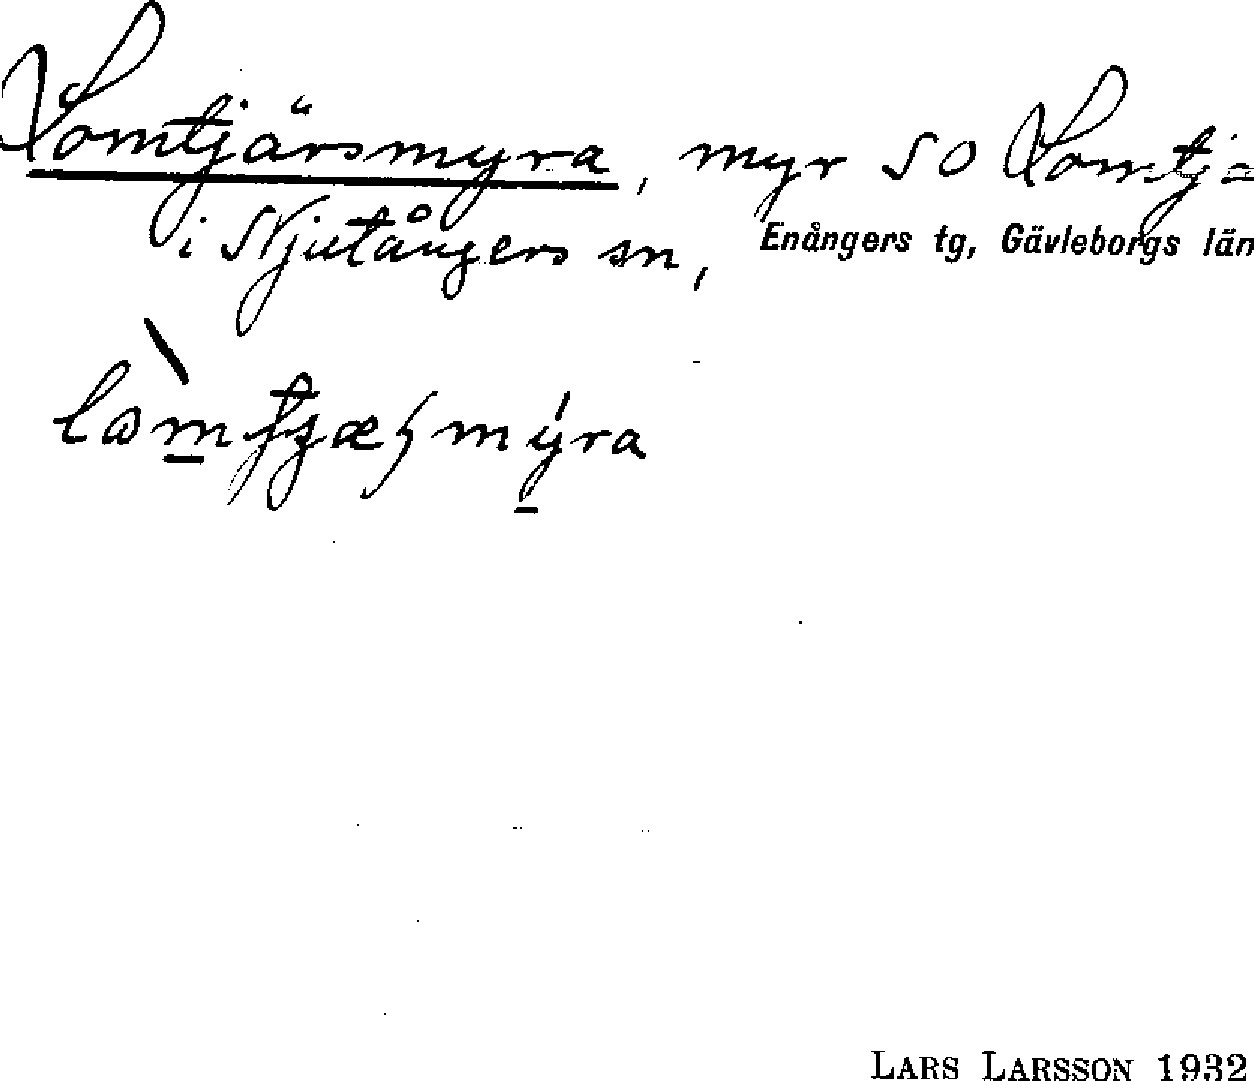 Lomtjärsmyra, myr SO Lomtj=
i Njutångers sn, Enångers tg, Gävleborgs län
LARS LARSSON 1932